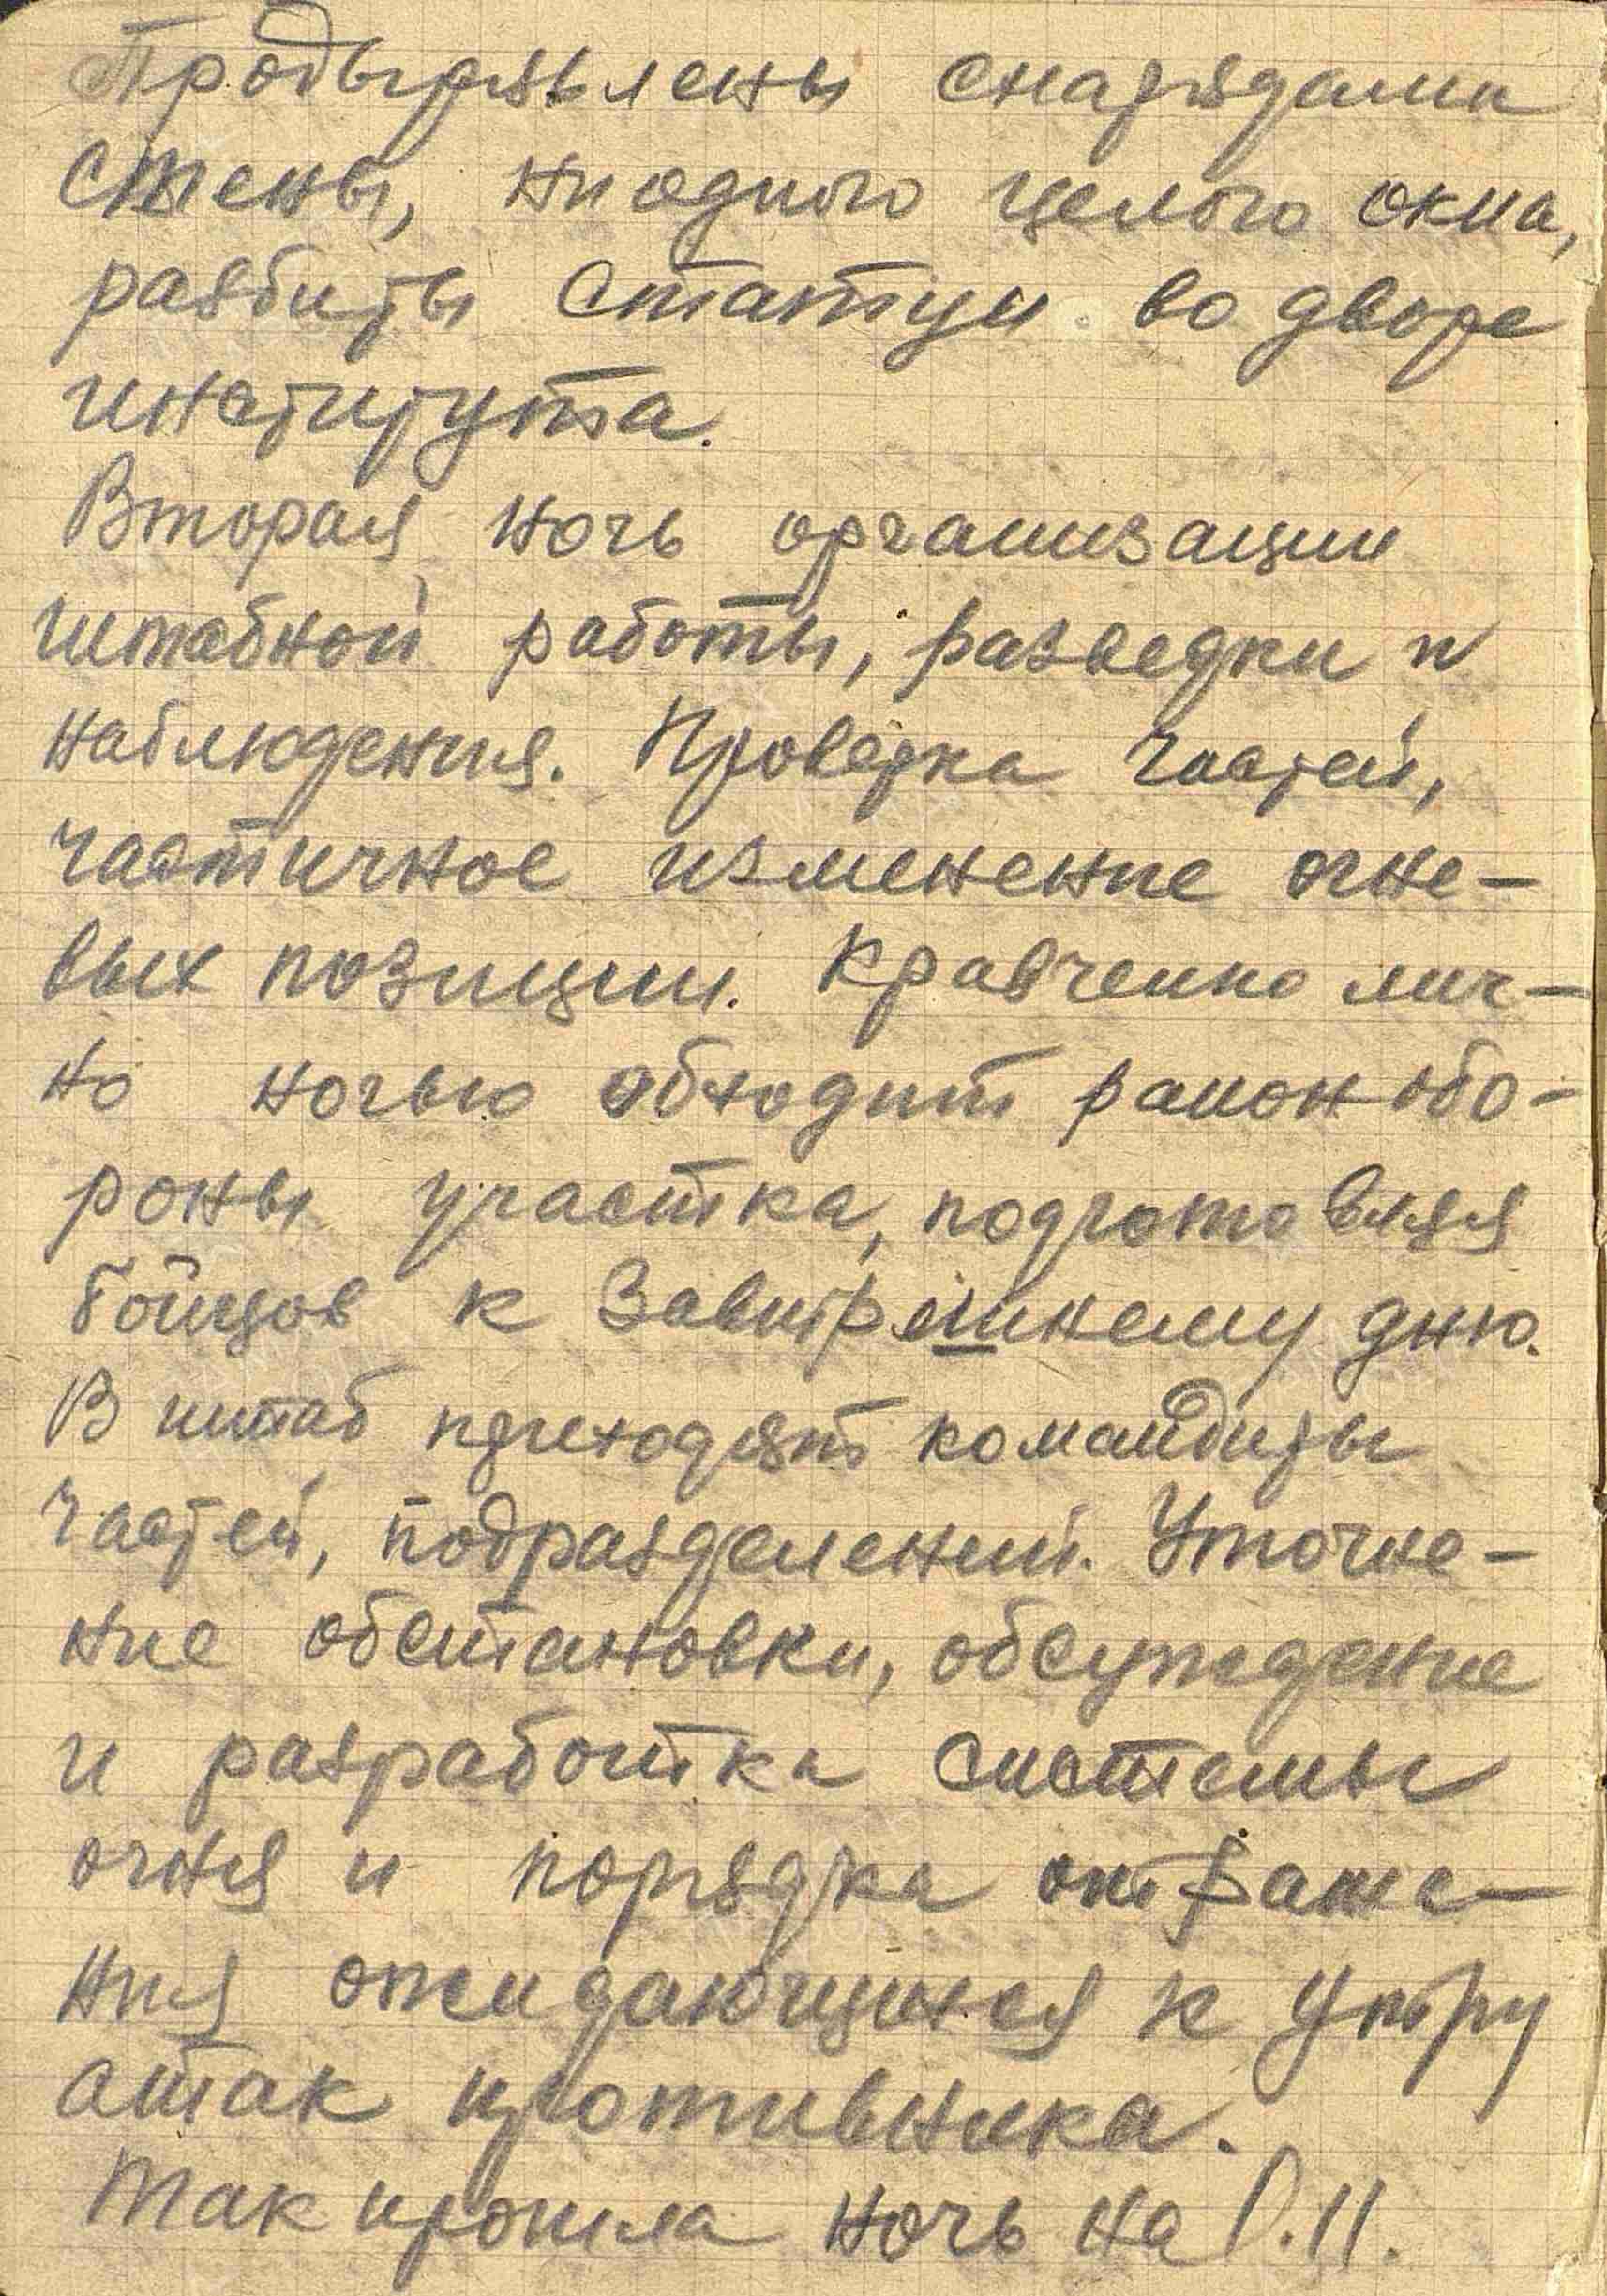 Продырявлены снарядами
стены, ни одного целого окна,
разбиты статуи во дворе
института.
Вторая ночь организации
штабной работы, разведки и
наблюдения. Проверка частей,
частичное изменение огне-
вых позиции. Кравченко лич-
но ночью обходит район обо-
роны участка, подготовляя
бойцов к завтрешнему дню.
В штаб приходят командиры
частей, подразделений. Уточне-
ние обстановки, обсуждение
и разработка системы
огня и порядка отраже-
ния ожидающихся к утру
атак противника.
Так прошла ночь на